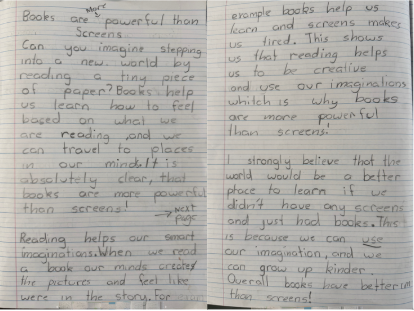 Books are more powerful than
Screens
Can you imagine stepping
into a new world by
reading a tiny piece
of paper? Books help
us learn how to feel
based on what we
are reading and we
can travel to places
in our minds. It is
absolutely clear, that
books are more powerful
than screens!
→ Next
page
Reading helps our smart
imaginations. When we read
a book our minds creates
the pictures and feel like
were in the story. For
example books help us
learn and screens makes
us tired. This shows
us that reading helps
us to be creative
and use our imaginations
whitch is why books
are more powerful
than screens!
I strongly believe that the
world would be a better
place to learn if we
didn't have any screens
and just had books. This
is because we can use
our imagination, and we
can grow up kinder.
Overall books have better
than screens!